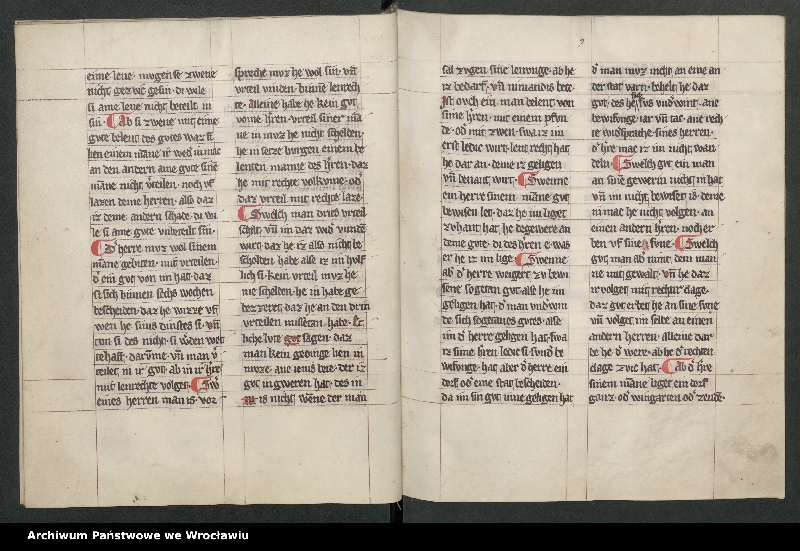 eine lene. mvgen se zwene
nicht gezvic gesin. di wile
si ame lene nicht beteilt in
sin. Ab si zwene mit eime
gute belent des gotes war
hen einem mane ir wed
an den andern ane gote sine
mane nicht vrteilen. noch vf
lazen deme herren. also daz
iz deme andern schade. di wi
le si ame gute vnbeteilt sin.
D' herre mvz wol sinem
mane gebiten. mit vrteilen.
d' ein gvt von im hat. daz
si sich binnen sechs wochen
bescheiden. daz he wizze vf
wen he sines dinstes si. vn
tvn si des nicht. si wden wet
tehaft. darvme vn man v'
teilet in ir gvt. ab in ir h're
mit lenrechte volget. Sw
eines herren man is. vor
spreche mvz he wol sin. vn
vrteil vinden. binne lenrech
te. Alleine habe he kein gvt
vome h'ren. vrteil siner ma
ne in mvz he nicht schelden.
he in setze burgen einem be
lenten manne des h'ren. daz
he mit rechte volkvme. od'
daz vrteil mit rechte laze.
Swelch man dries vrteil
schilt. vn im daz wid' vunde
wirt. daz he iz also nicht be
scholden habe alse iz im hof
lich si. kein vrteil mvz he
me schelden. he in habe ge
bezzeret. daz he an den drin
vrteilen missetan habe. Et
liche lute got sagen. daz
man kein gedinge lien in
mvze. ane ienis bete. der iz
gvt in geweren hat. des in
is nicht. wene der man
sal zvgen sine lenvnge. ab he
iz bedarf. vn nimandis bete.
Ist ovch ein man belent von
sime h'ren. mit einem pfvn
de. od' mit zwein. swa iz im
erst ledic wirt. lenrecht hat
he dar an. deme iz geligen
vn benant wirt. Swenne
ein herre sinem mane gvt
bewisen let. daz he im liget
zvhant hat. he begewere an
deme gote. di des h'ren e was
er he iz im lige. Swenne
ab d' herre weigert zv bewi
sene sogetan gvt. alse he im
geligen hat. d' man vnd'win
de sich sogetanes gvtes. alse
im d' herre geligen hat. swa
iz sime h'ren ledic si. svnd' be
wisvnge. hat aber d' herre ein
dorf od' eine stat bescheiden.
da im sin gvt inne geligen hat
d' man mvz nicht an eine an
der stat varn. beheln he daz
got. des he sus vnd'wint. ane
bewisvnge. iar vn tac. ane rech
te wid'sprache. sines herren.
d' h're mac iz im nicht wan
deln. Swelch gvt ein man
an sine gewerin nicht in hat
vn im nicht bewiset is. deme
in mac he nicht volgen. an
einen andern h'ren. noch er
ben vf sine svne. Swelch
gvt man ab nimt dem man
ne mit gewalt. vn he daz
ir volget mit rechtir clage.
daz gvt erbet he an sine svne
vn volget im selbe an einen
andern herren. alleine dar
be he d' were. ab he d' rechten
clage zvgc hat. Ab d' h're
sinem mane liget ein dorf
ganz. od' wingarten od' zende.
Archiwum Państwowe we Wrocławiu